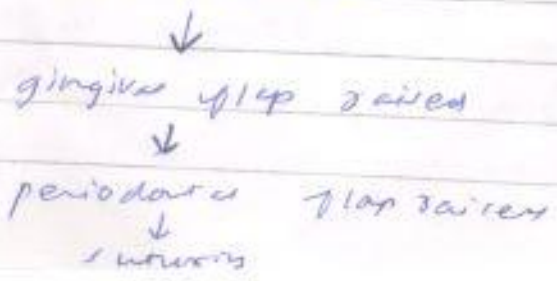 ↓
gingival flap raised
↓
periodontal flap raised
↓
suturing